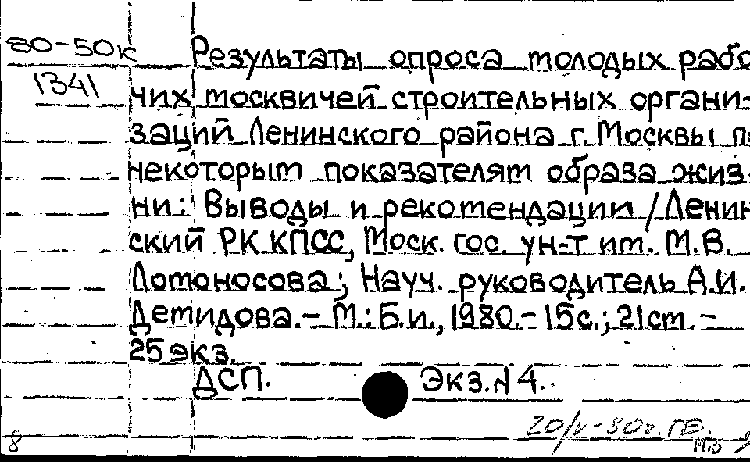 80-50к Результаты опроса молодых рабо
1341 чих москвичей строительных органи-
заций Ленинского района г. Москвы п
некоторым показателям образа жиз
ни: Выводы и рекомендации / Ленин
ский РК КПСС, Моск. гос. ун-т им. М.В.
Ломоносова; Науч. руководитель А.И.
Демидова.- М.: Б.и., 1980.- 15с.; 21см.-
25 экз.
ДСП. Экз. N 4.
20/V-80г. ГБ.
8